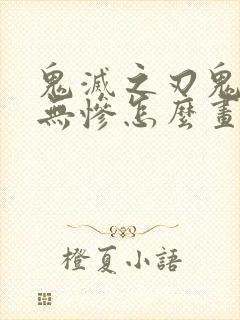 鬼滅之刃鬼
無慘怎麼畫
橙夏小語